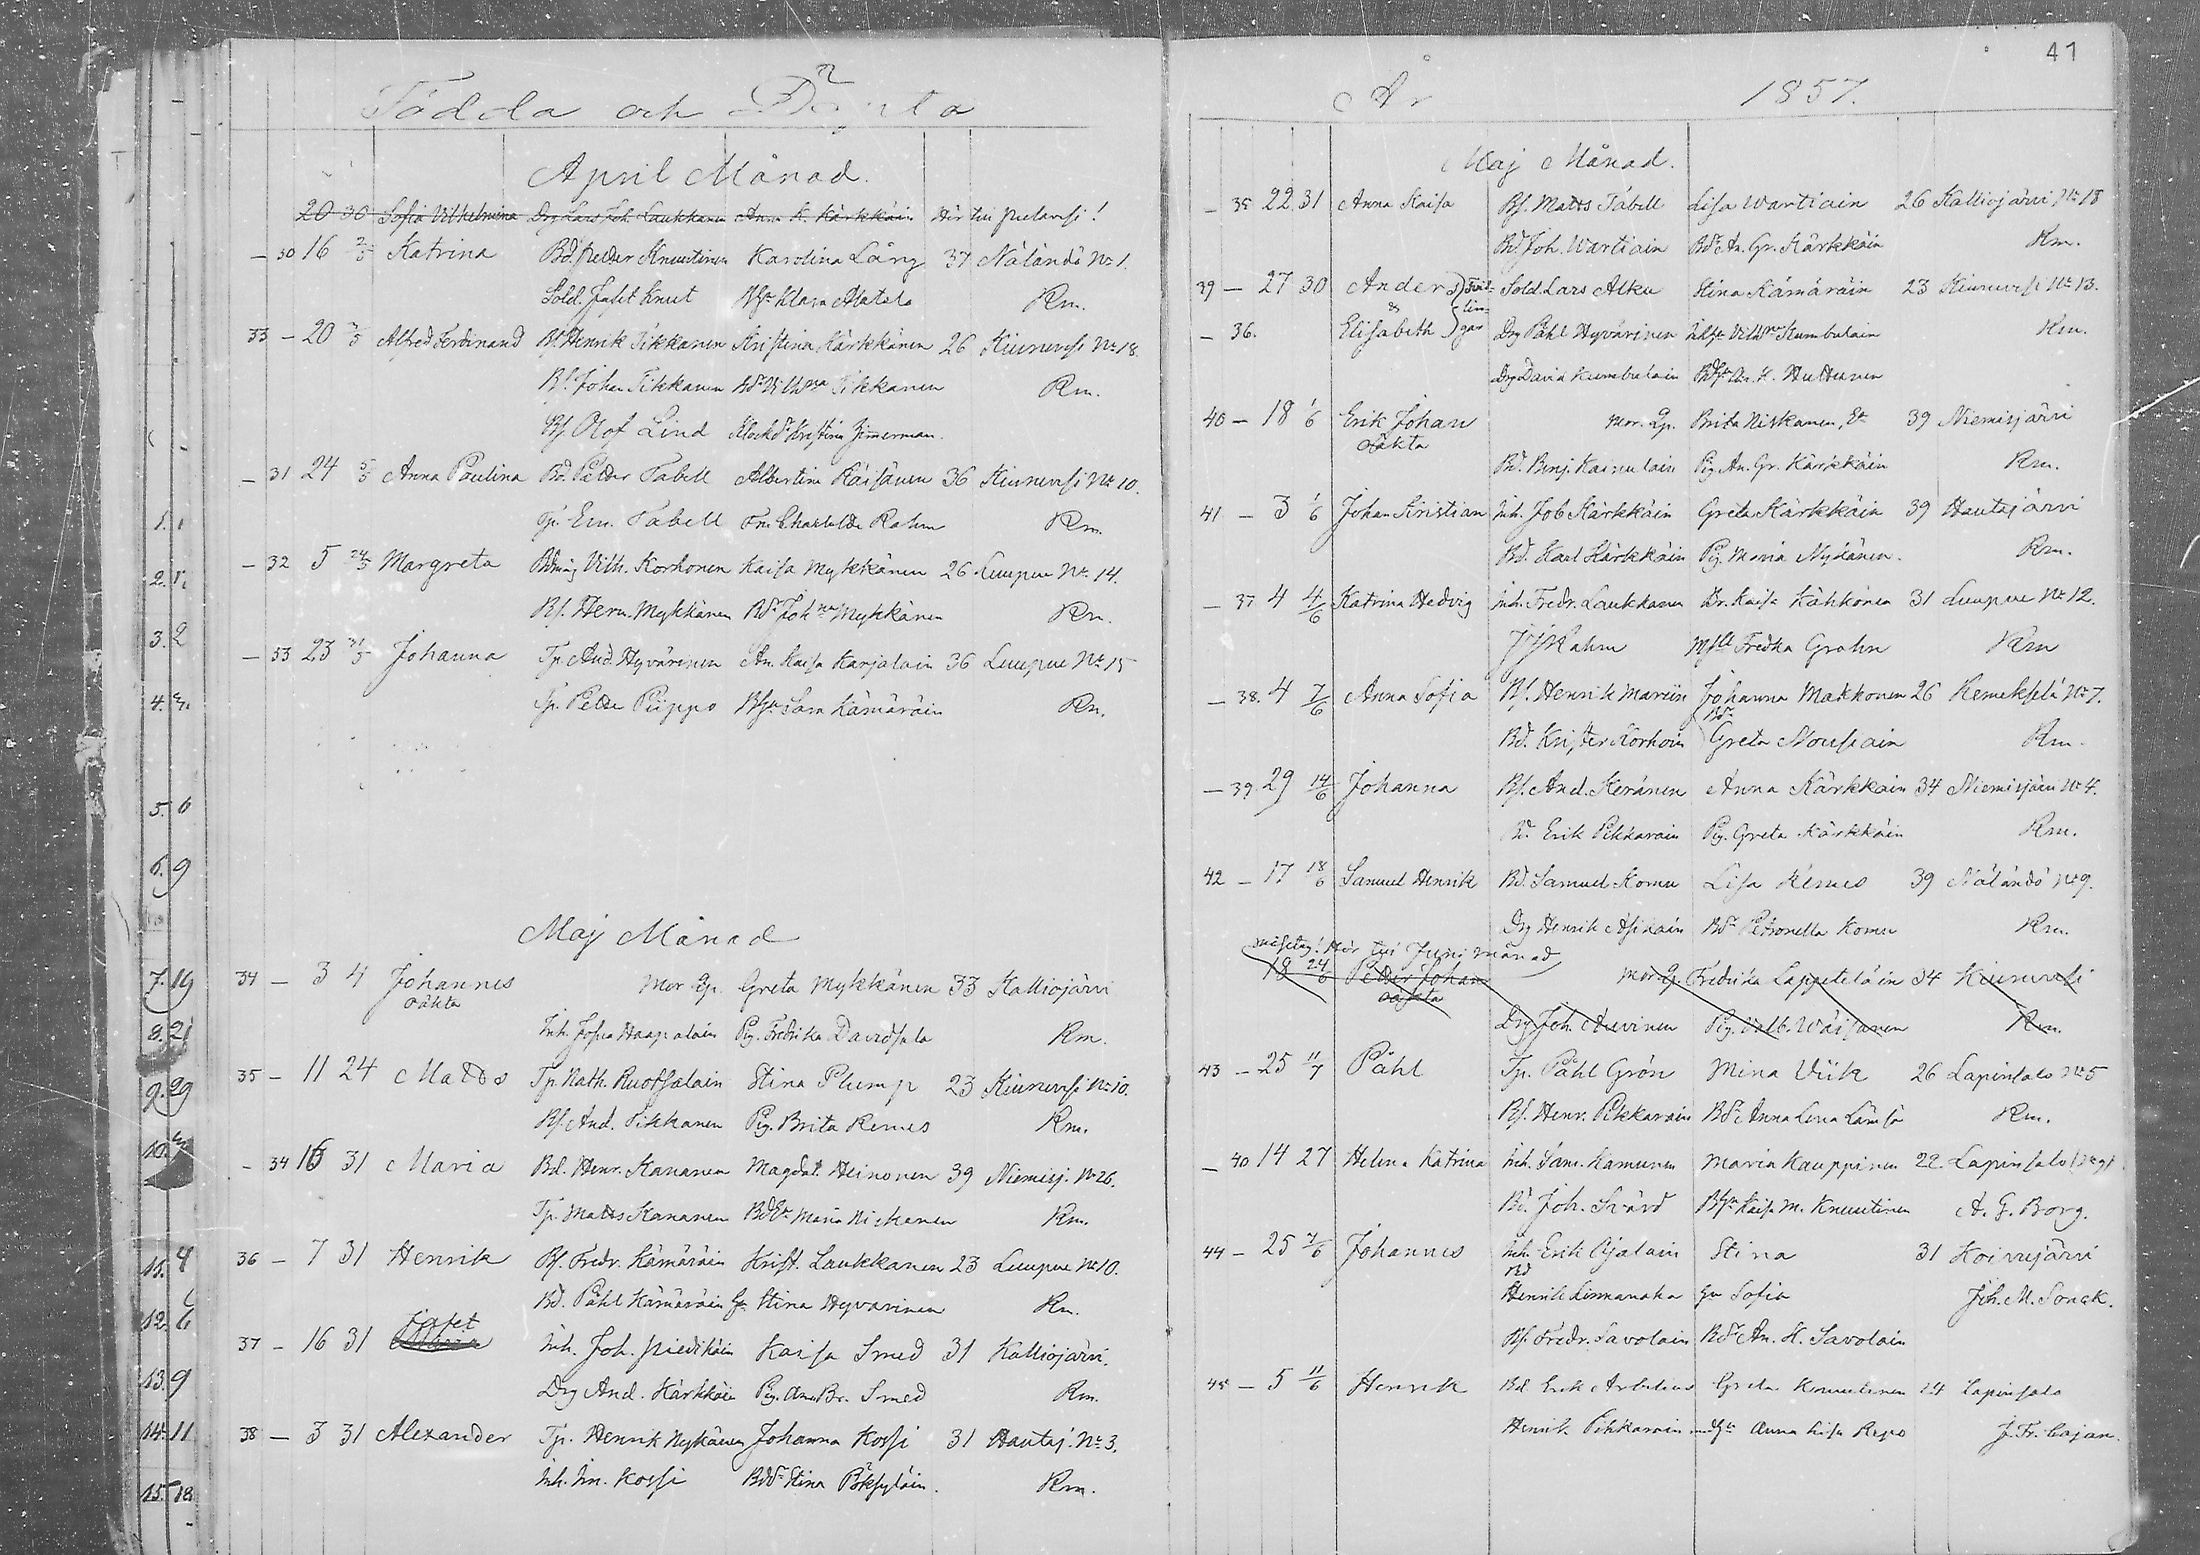 Födda och Döpta
April Månad.
20 30 Sofia Vilhelmina Drg Lars Joh. Laukkanen Anna K. Kärkkäin
— 30 16 2/5 Katrina Bd. Petter Knuutinen Karolina Lång 37 Näländö No 1.
Sold. Jafet Knut Klara Rm.
33 — 20 3/5 Alfred Ferdinand Bf. Henrik Tikkanen Kristina Kärkkänen 26 Kiuruvesi No 18.
Bf. Johan Tikkanen Bdr Vilhna Tikkanen Rm.
Bf. Olof Lind Klockdr Kristina Zimerman.
— 31 24 5/5 Anna Paulina Bd. Petter Tabell Albertina Räisänen 36 Kiuruvesi No 10.
Tp. Em. Tabell Frn. Charlotta Rahm Rm.
— 32 5 24/5 Margreta Bdmåg Vilh. Korhonen Kaisa Mykkänen 26 Luupue No 14.
Bf. Herm. Mykkänen Bdr Johna Mykkänen Rm.
— 33 23 31/5 Johanna Tp. And. Hyvärinen An. Kaisa Karjalain 36 Luupue No 15
Tp. Petter Piippo Sara Kämäräin Rm.
Maj Månad
34 — 3 4 Johannes Mor. Gp. Greta Mykkänen 33 Kalliojärvi
oäkta
Inh. Josua Haapalain Pig. Fredrika Davidsala Rm.
35 — 11 24 Matts Tp. Nath. Ruotsalain Stina Plump 23 Kiuruvesi No 10.
Bf. And. Tikkanen Pig. Brita Remes Rm.
— 34 16 31 Maria Bd. Henr. Kananen Magdal. Heinonen 39 Niemisj. No 26.
Tp. Matts Kananen Maria Niskanen Rm.
36 — 7 31 Henrik Bf. Fredr. Kämäräin Krist. Laukkanen 23 Luupue No 10.
Bd. Påhl Kämäräin Stina Hyvärinen Rm.
Jafet
37 — 16 31 Inh. Joh. Piedikäin Kaisa Smed 31 Kalliojärvi.
Drg And. Kärkkäin Pig. Anna Br. Smed Rm.
38 — 3 31 Alexander Tp. Henrik Nykänen Johanna Kossi 31 Hautaj. No 3.
Inh. Im. Kossi Stina Pöksyläin. Rm.
41
År 1857.
Maj Månad.
— 35 22 31 Anna Kaisa Bf. Matts Tabell Lisa Wartiain 26 Kalliojärvi No 18
Bd. Joh. Wartiain Bdr An. Gr. Kärkkäin Rm.
39 — 27 30 Anders Tvil- Sold. Lars Alku Stina Kämäräin 23 Kiuruvesi No 13.
& lin-
— 36. Elisabeth gar Drg Påhl Hyvärinen Vilhna Kumbulain Rm.
Drg David Kumbulain An. K. Huttunen
40 — 18 1/6 Erik Johan Mor. Gp. Brita Niskanen, 39 Niemisjärvi
oäkta
Bd. Benj. Kainulain Pig. An. Gr. Kärkkäin Rm.
41 — 3 1/6 Johan Kristian Inh. Job Kärkkäin Greta Kärkkäin 39 Hautajärvi
Bd. Karl Kärkkäin Pig. Maria Nykänen. Rm.
— 37 4 4/6 Katrina Hedvig Inh. Fredr. Laukkanen Kaisa Kähkönen 31 Luupue No 12.
J J Rahm Fredka Grohn Rm
— 38. 4 7/6 Anna Sofia Bf. Henrik Mariin Johanna Makkonen 26 Remekselä No 7.
Bdr
Bd. Krister Korhoin Greta Nousiain Rm.
— 39 29 14/6 Johanna Bf. And. Keränen Anna Kärkkäin 34 Niemisjärvi No 4.
Bd. Erik Pikkarain Pig. Greta Kärkkäin Rm.
42 — 17 18/6 Samuel Henrik Bd. Samuel Komu Lisa Remes 39 Näländö No 9.
Drg Henrik Asikain Bdr Petronella Komu Rm.
misstag! Hör till Juni månad
18 24/6 Petter Johan Mor. Gp. Fredrika Lappeteläin 34 Kiuruvesi
oäkta
Drg Joh. Auvinen Pig. Valb. Wäisänen Rm.
43 — 25 11/7 Påhl Tp. Påhl Grön Mina Viik 26 Lapinsalo No 5
Bf. Henr. Pikkarain Bdr Anna Lena Lämsä Rm.
— 40 14 27 Helena Katrina Inh. Sam. Kamunen Maria Kauppinen 22 Lapinsalo
Bd. Joh. Svärd Kaisa M. Knuutinen A. G. Borg.
44 — 25 7/6 Johannes Inh. Erik Ojalain Stina 31 Koivujärvi
Bd
Henrik Linnanaha Sofia Joh. M. Sonck.
Bf. Fredr. Savolain Bdr An. K. Savolain
45 — 5 11/6 Henrik Bd. Erik Arbelius Greta Knuutinen 24 Lapinsalo
Henrik Pikkarain Anna Lisa Repo J. Fr. Cajan.
1. 1
2.
3. 2
4.
5. 6
6. 9
7. 19
8. 21
9. 29
10.
11. 4
12. 6
13. 9
14. 11
15. 18